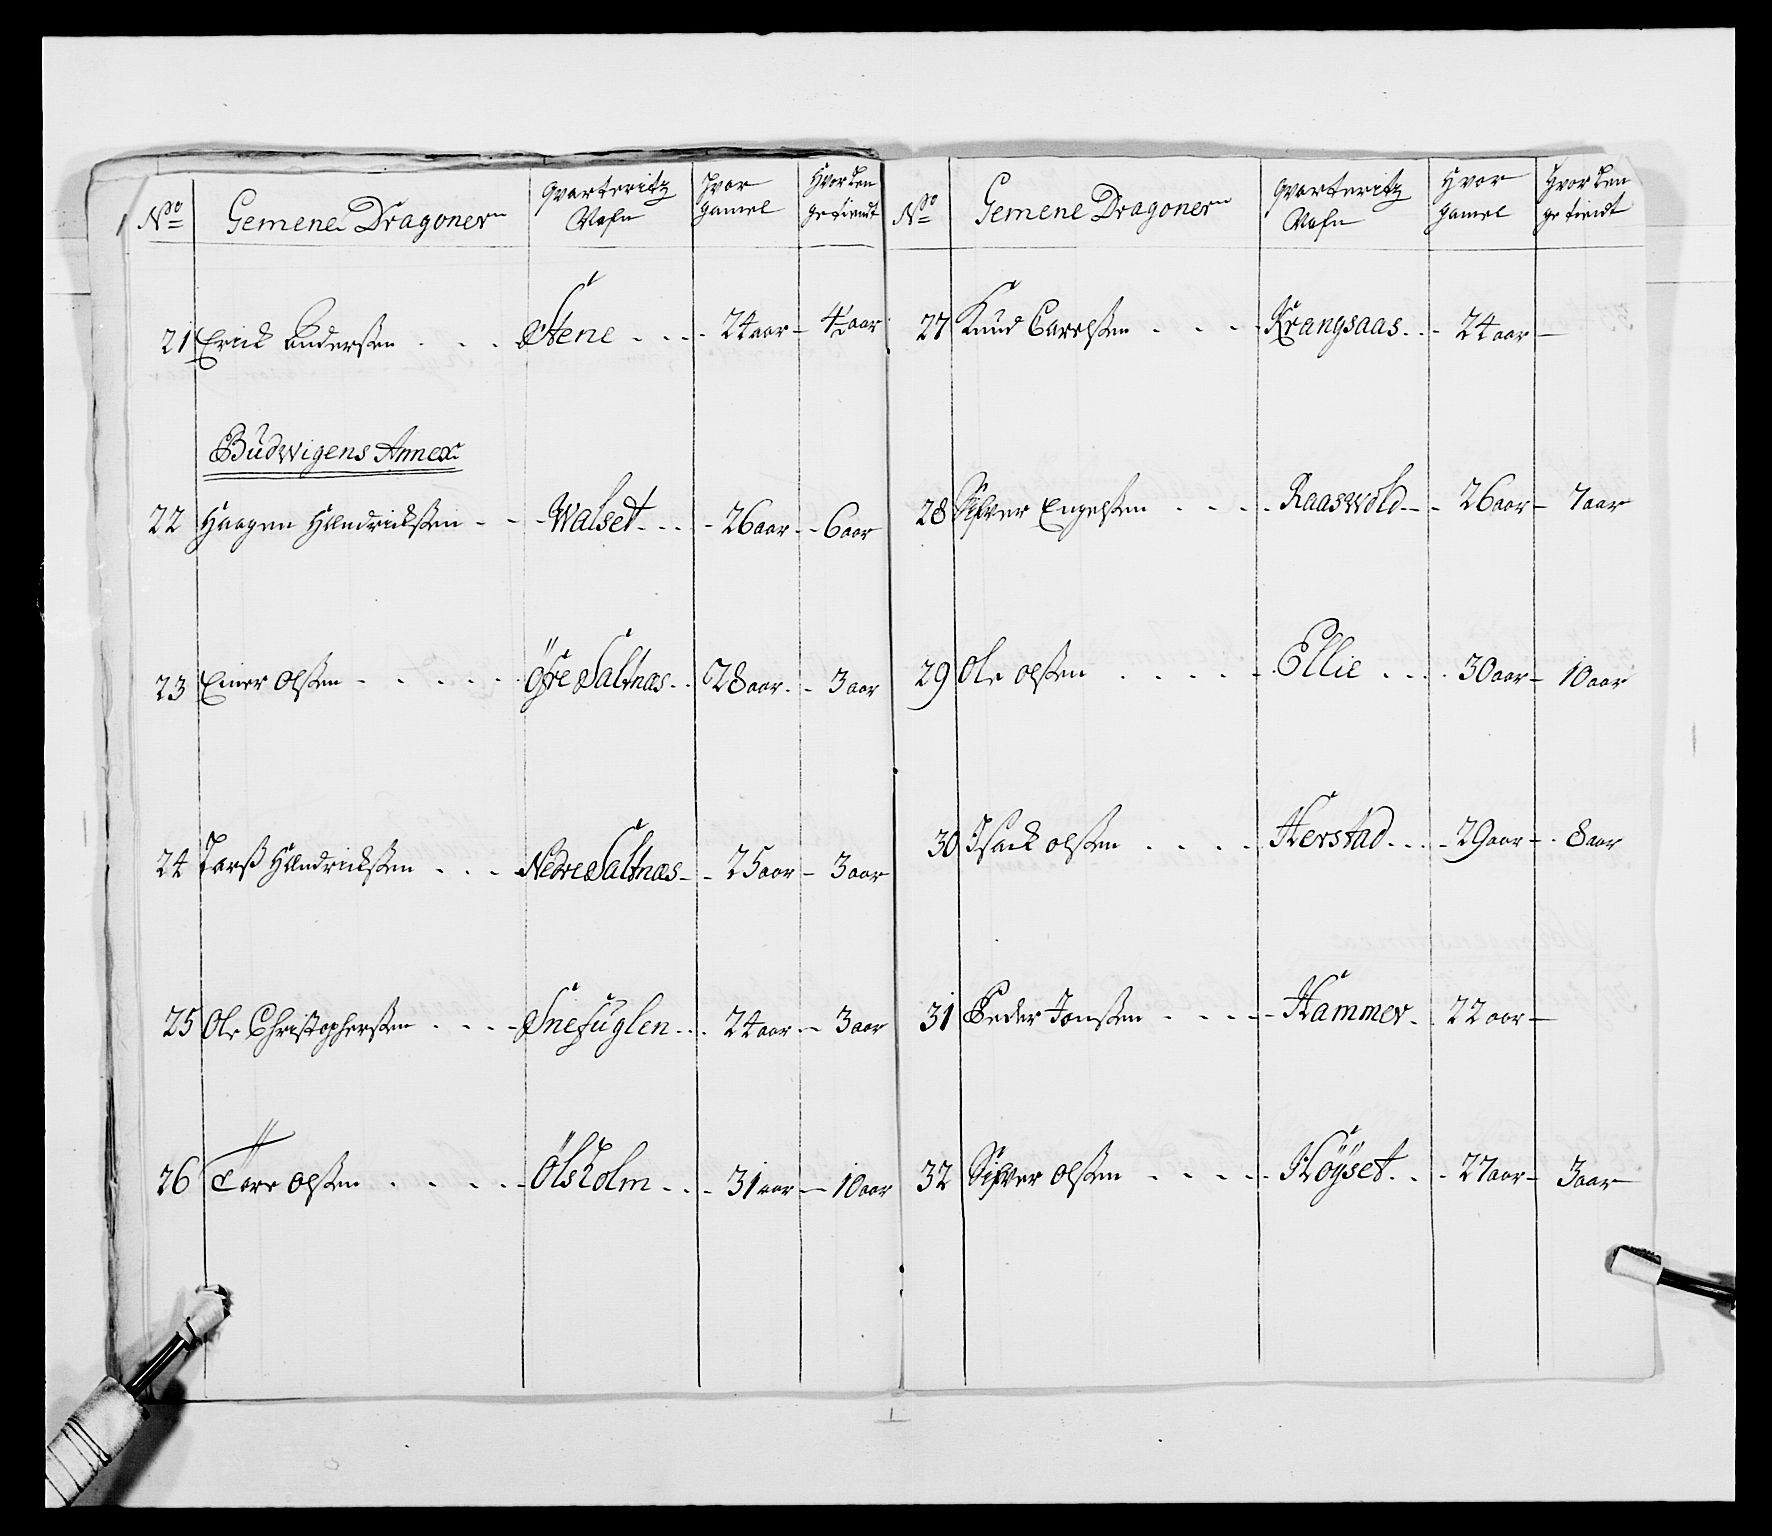 No Gemene Dragoner Qvarteritz Nafn Hvor gamel Hvor len getient
21 Erick Anderssen Stene 24 aar 4½ aar
Budwigens Annex
22 Haagen Hendrickssen Walset 26 aar 6 aar
23 Einer Olssen Öfre Saltnæs 28 aar 3 aar
24 Larss Hendrickssen Nedre Saltnæs 25 aar 3 aar
25 Ole Christopherssen Snefuglen 24 aar 3 aar
26 Tore Olssen Ölsholm 31 aar 10 aar
No Gemene Dragoner Qvarteritz Nafn Hvor gamel Hvor len getient
27 Knud Carelssen Krangsaas 24 aar
28 Siffver Engelssen Raaswold 26 aar 7 aar
29 Ole Olssen Ellie 30 aar 10 aar
30 Isack Olssen Herstad 29 aar 8 aar
31 Peder Jonssen Hammer 22 aar
32 Siffver Olssen Höyset 27 aar 3 aar